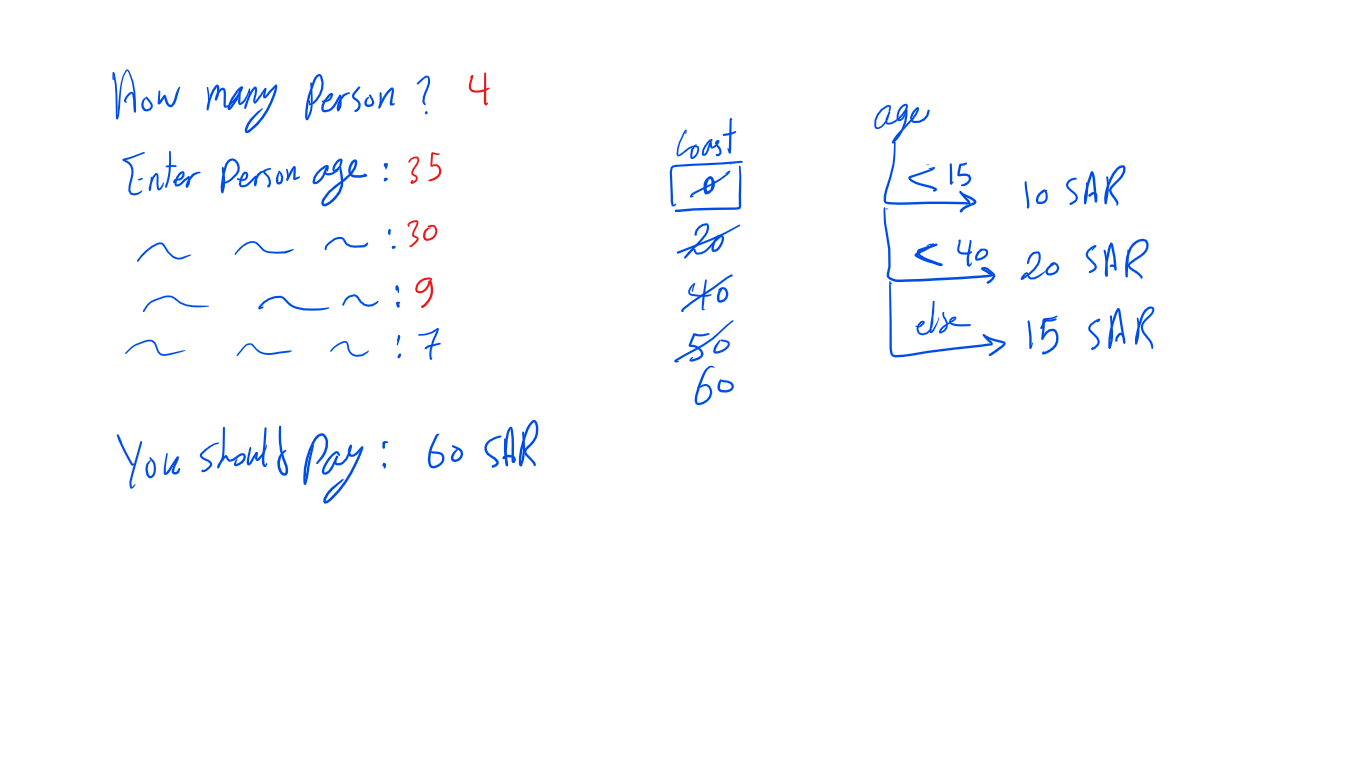 How many Person ? 4
Enter Person age : 35
~ ~ ~ : 30
~ ~ ~ : 9
~ ~ ~ : 7
You should Pay : 60 SAR
Coast
0
20
40
50
60
age
< 15 10 SAR
< 40 20 SAR
else 15 SAR